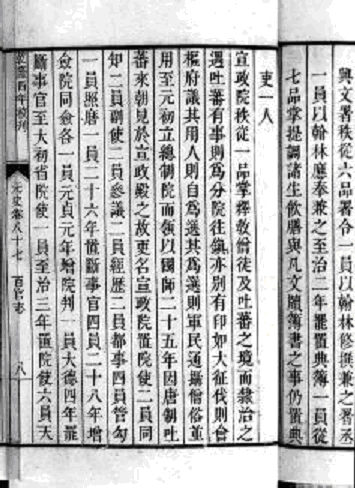 興文署秩從六品署令一員以翰林修撰兼之署丞
一員以翰林應奉兼之至治二年罷置典簿一員從
七品掌提調諸生飲膳與凡文牘簿書之事仍置典
吏一人
宣政院秩從一品掌釋教僧徒及吐蕃之境而隸治之
遇吐蕃有事則爲分院往鎮亦別有印如大征伐則會
樞府議其用人則自爲選其爲選則軍民通攝僧俗並
用至元初立總制院而領以國師二十五年因唐制吐
蕃來朝見於宣政殿之故更名宣政院置院使二員同
知二員副使二員參議二員經歷二員都事四員管勾
一員照磨一員二十六年置斷事官四員二十八年增
僉院同僉各一員元貞元年增院判一員大德四年罷
斷事官至大初省院使一員至治三年置院使六員天
四年校刊
元史卷八十七 百官志 八